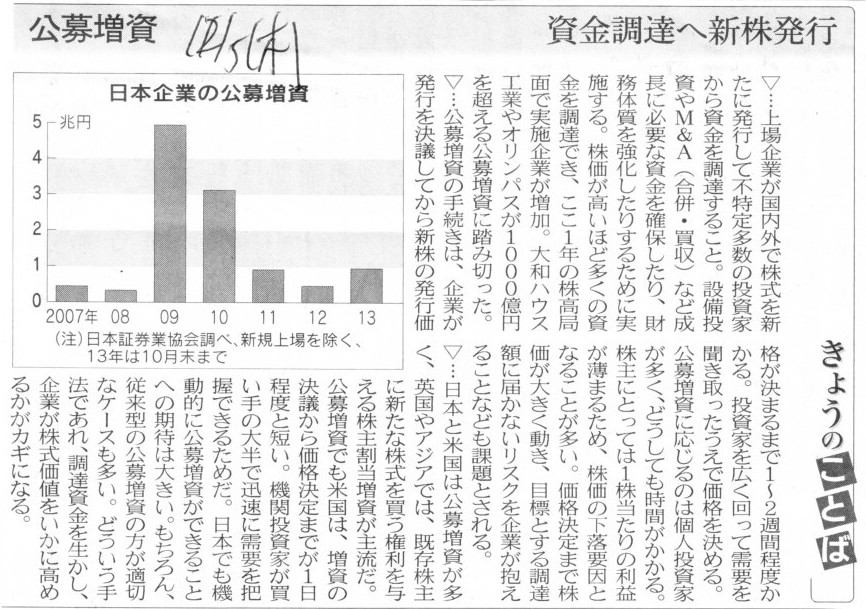 資金調達へ新株発行
公募増資
きょうのことば
▽…上場企業が国内外で株式を新
たに発行して不特定多数の投資家
から資金を調達すること。設備投
資やM&A(合併・買収)など成
長に必要な資金を確保したり、財
務体質を強化したりするために実
施する。株価が高いほど多くの資
金を調達でき、ここ1年の株高局
面で実施企業が増加。大和ハウス
工業やオリンパスが1000億円
を超える公募増資に踏み切った。
▽…公募増資の手続きは、企業が
発行を決議してから新株の発行価
格が決まるまで1〜2週間程度か
かる。投資家を広く回って需要を
聞き取ったうえで価格を決める。
公募増資に応じるのは個人投資家
が多く、どうしても時間がかかる。
株主にとっては1株当たりの利益
が薄まるため、株価の下落要因と
なることが多い。価格決定まで株
価が大きく動き、目標とする調達
額に届かないリスクを企業が抱え
ることなども課題とされる。
▽…日本と米国は公募増資が多
く、英国やアジアでは、既存株主
に新たな株式を買う権利を与
える株主割当増資が主流だ。
公募増資でも米国は、増資の
決議から価格決定までが1日
程度と短い。機関投資家が買
い手の大半で迅速に需要を把
握できるためだ。日本でも機
動的に公募増資ができること
への期待は大きい。もちろん、
従来型の公募増資の方が適切
なケースも多い。どういう手
法であれ、調達資金を生かし、
企業が株式価値をいかに高め
るかがカギになる。
日本企業の公募増資
5 兆円
4
3
2
1
0
2007年 08 09 10 11 12 13
(注)日本証券業協会調べ、新規上場を除く、
13年は10月末まで